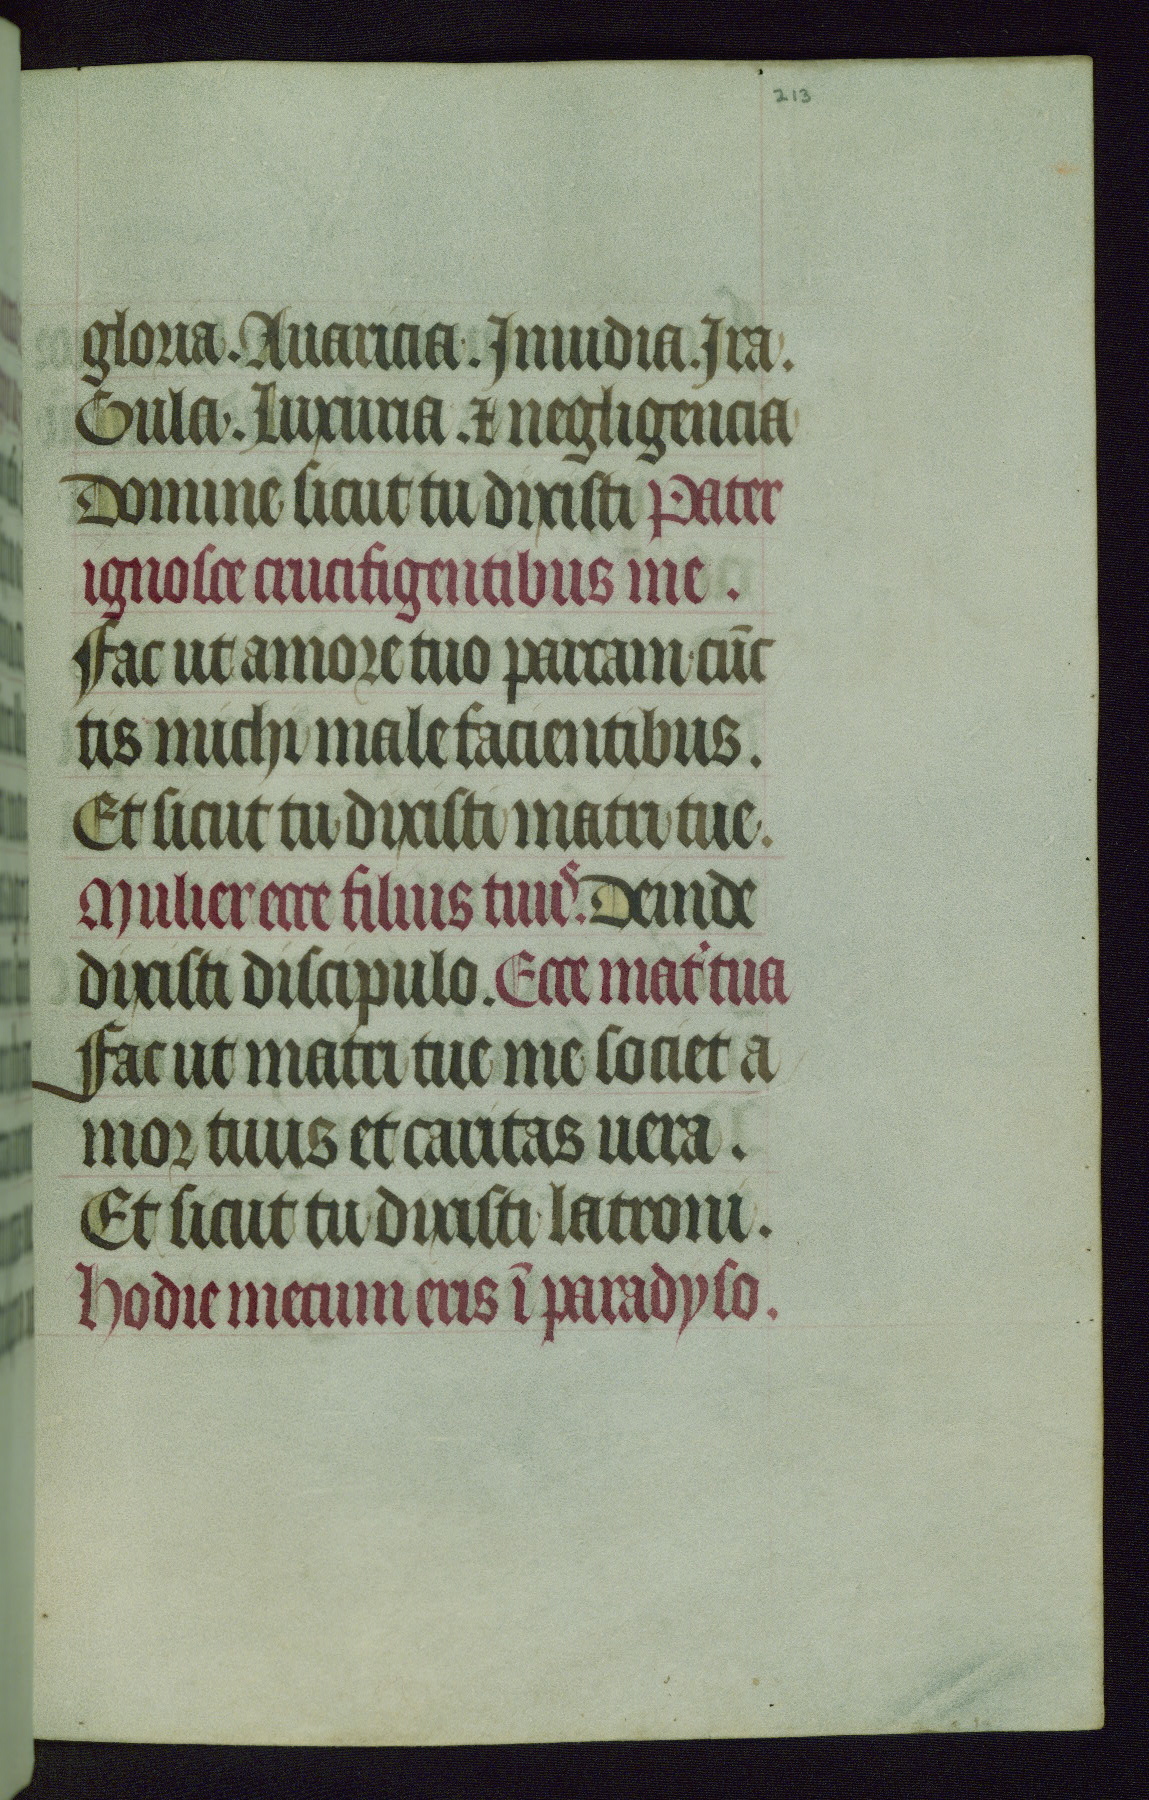 213
gloria. Auaricia. Inuidia. Ira.
Gula. Luxuria. & negligencia
Domine sicut tu dixisti Pater
ignosce crucifigentibus me.
Fac ut amore tuo parcam cūc
tis michi malefacientibus.
Et sicut tu dixisti matri tue.
Mulier ecce filius tuus. Deinde
dixisti discipulo. Ecce mat᷑ tua
Fac ut matri tue me societ a
mor tuus et caritas uera.
Et sicut tu dixisti latroni.
Hodie mecum eris ī paradyso.